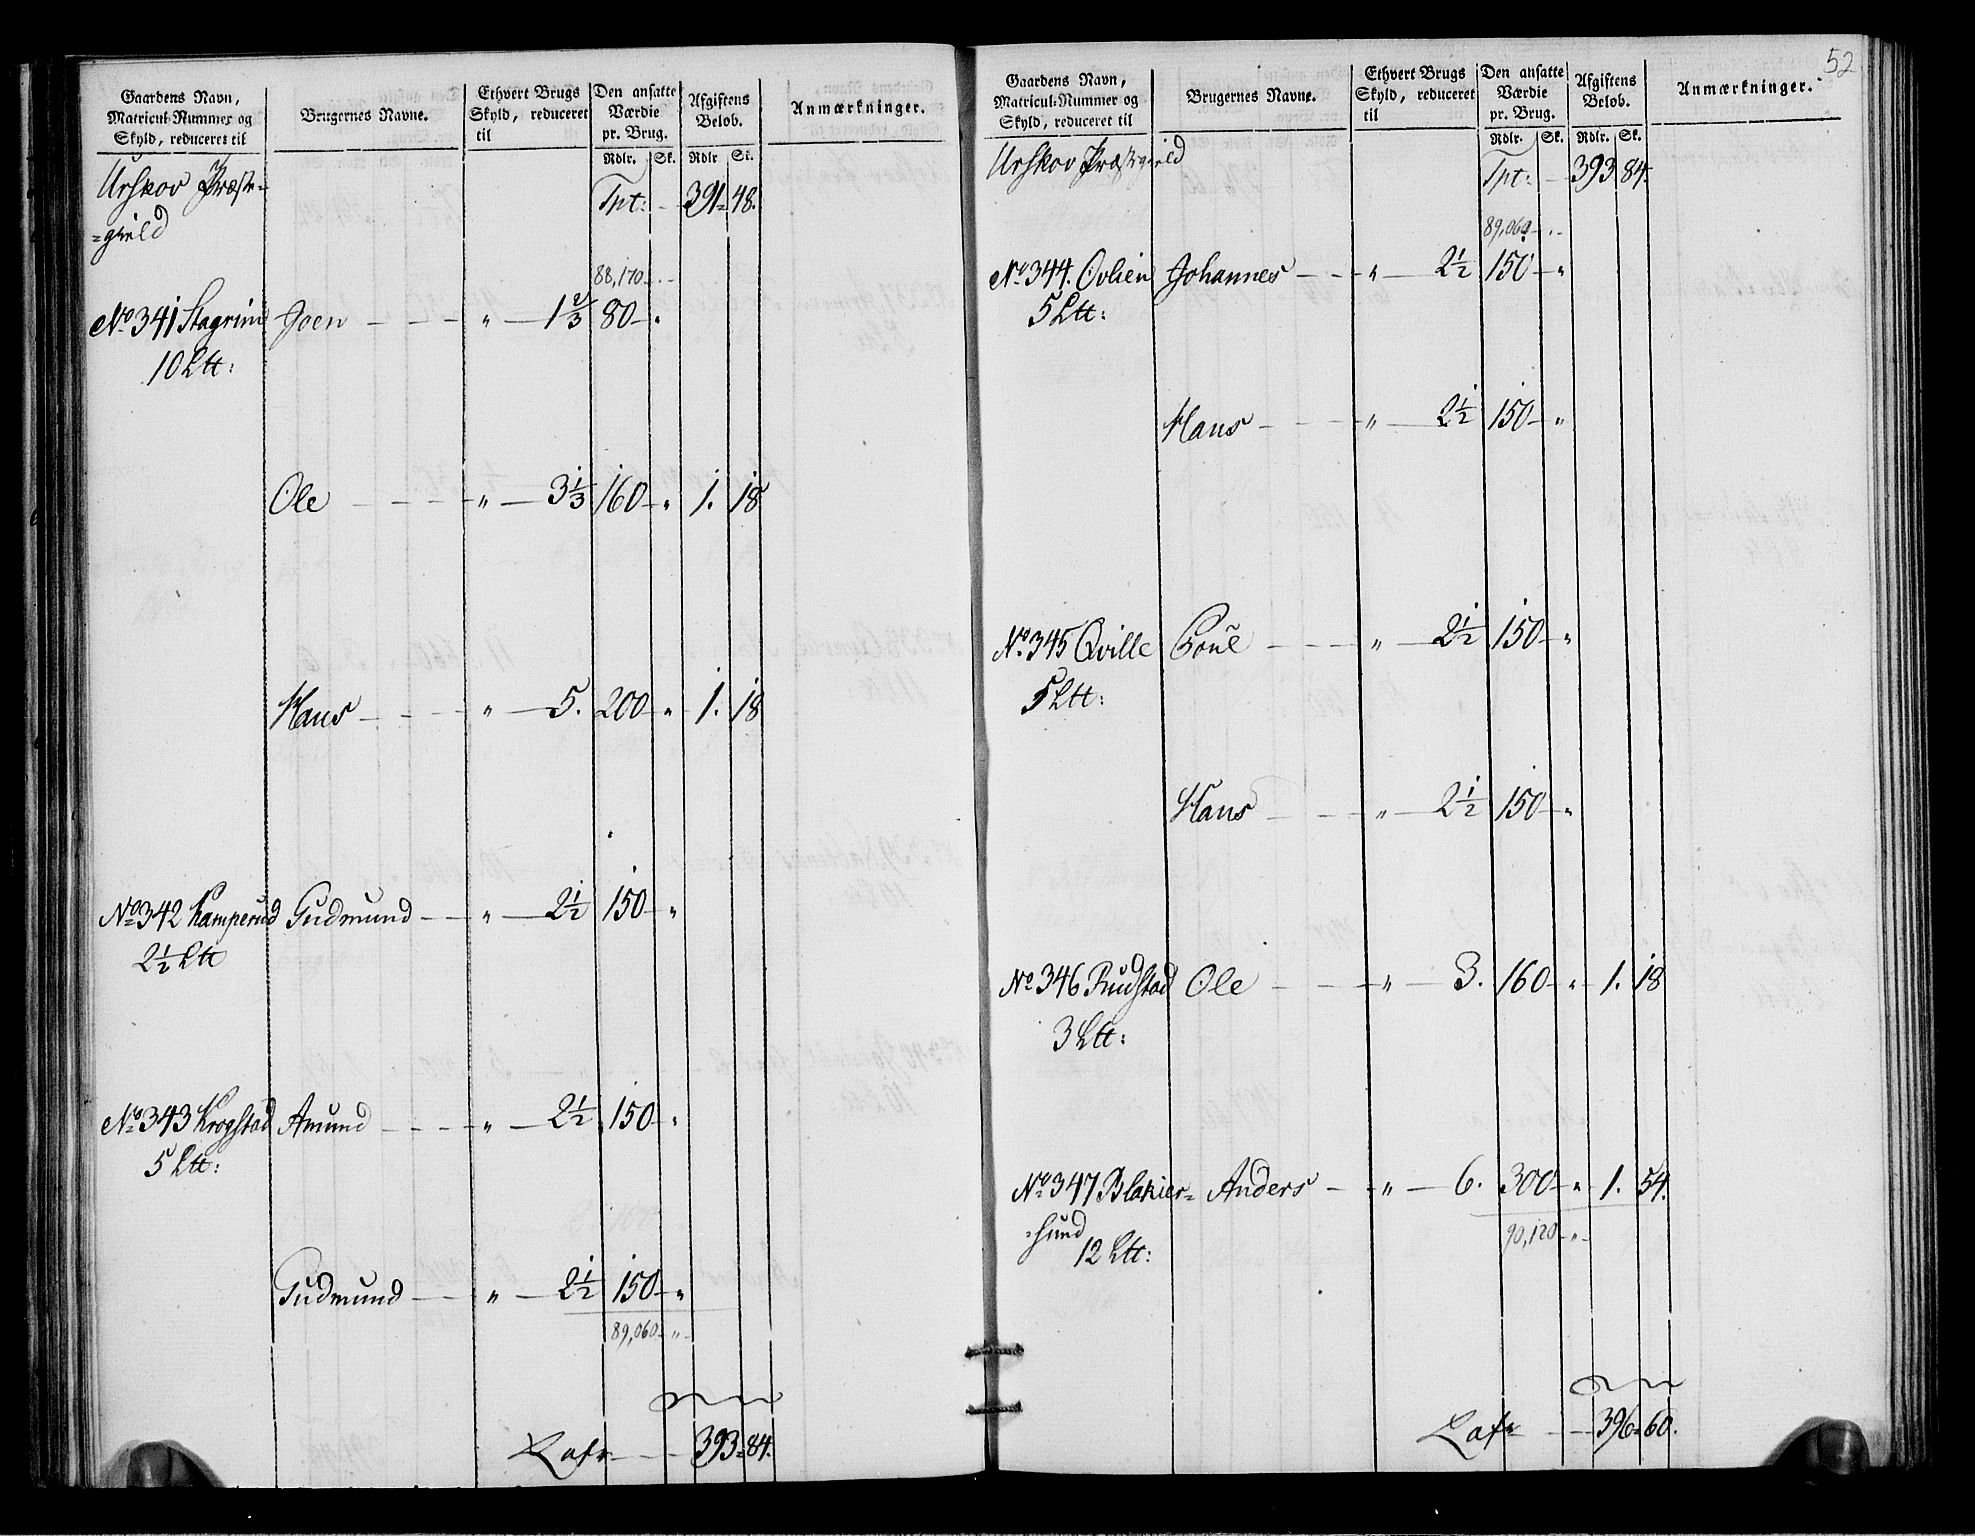 Gaardens Navn, Matricul-Nummer og Skyld, reduceret til | Brugernes Navne. | Ethvert Brugs Skyld, reduceret til | Den ansatte Værdie pr. Brug. Rdlr. Sk. | Afgiftens Belob. Rdlr Sk. | Anmærkninger.
Urskov Præste-
=gield
Tpt: 391= 48.
88,170
No 341 Stagrim Joen " 1 2/3 80 "
10 Ltt:
Ole " 3 1/3 160 " 1. 18
Hans " 5. 200 " 1. 18
No 342 Kamperud Gudmund " 2 1/2 150 "
2 1/2 Ltt
No 343 Krogstad Amund " 2 1/2 150 "
5 Ltt:
Gudmund " 2 1/2 150 "
89,060 "
Lats 393= 84.
52
Gaardens Navn, Matricul-Nummer og Skyld, reduceret til | Brugernes Navne. | Ethvert Brugs Skyld, reduceret til | Den ansatte Værdie pr. Brug. Rdlr. Sk. | Afgiftens Belob. Rdlr. Sk. | Anmærkninger.
Urskov Præstegield
Tpt: 393 84.
89,060
No 344. Ovlien Johannes " 2 1/2 150 "
5 Ltt:
Hans " 2 1/2 150 "
No 345 Qville Poül " 2 1/2 150 "
5 Ltt:
Hans " 2 1/2 150 "
No 346 Rudstad Ole " 3. 160 " 1. 18
3 Ltt:
No 347 Blakier= Anders " 6. 300 " 1. 54.
=sund
12 Ltt:
90,120 "
Lats 396= 60.